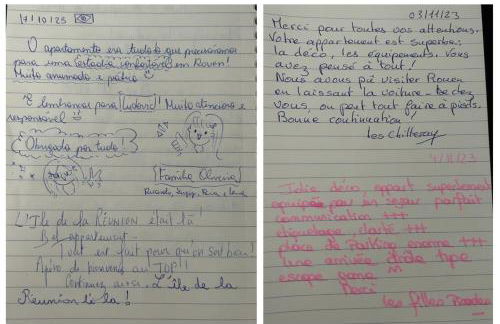 17/10/23
O apartamento era tudo o que procurávamos
para uma estadia confortável em Rouen!
Muito arrumado e prático
E lembranças para Ludovic! Muito atencioso e
responsável
Obrigada por tudo!
Família Oliveira
Ricardo,
L'Ile de la RÉUNION était là!
Bel appartement.
Tout est fait pour qu'on soit bien!
Apéro de bienvenue au TOP!!
Continuez ainsi. L'île de la
Réunion là!
03/11/23
Merci pour toutes vos attentions.
Votre appartement est superbe:
la déco, les équipements. Vous
avez pensé à tout!
Nous avons pu visiter Rouen
en laissant la voiture de chez
vous, on peut tout faire à pieds.
Bonne continuation!
Les
4/11/23
Jolie déco, appart superbement
équipée pour un séjour parfait
communication +++
étiquetage, clarté +++
place de Parking énorme +++
Une arrivée drôle type
escape game ^^
Merci
les filles